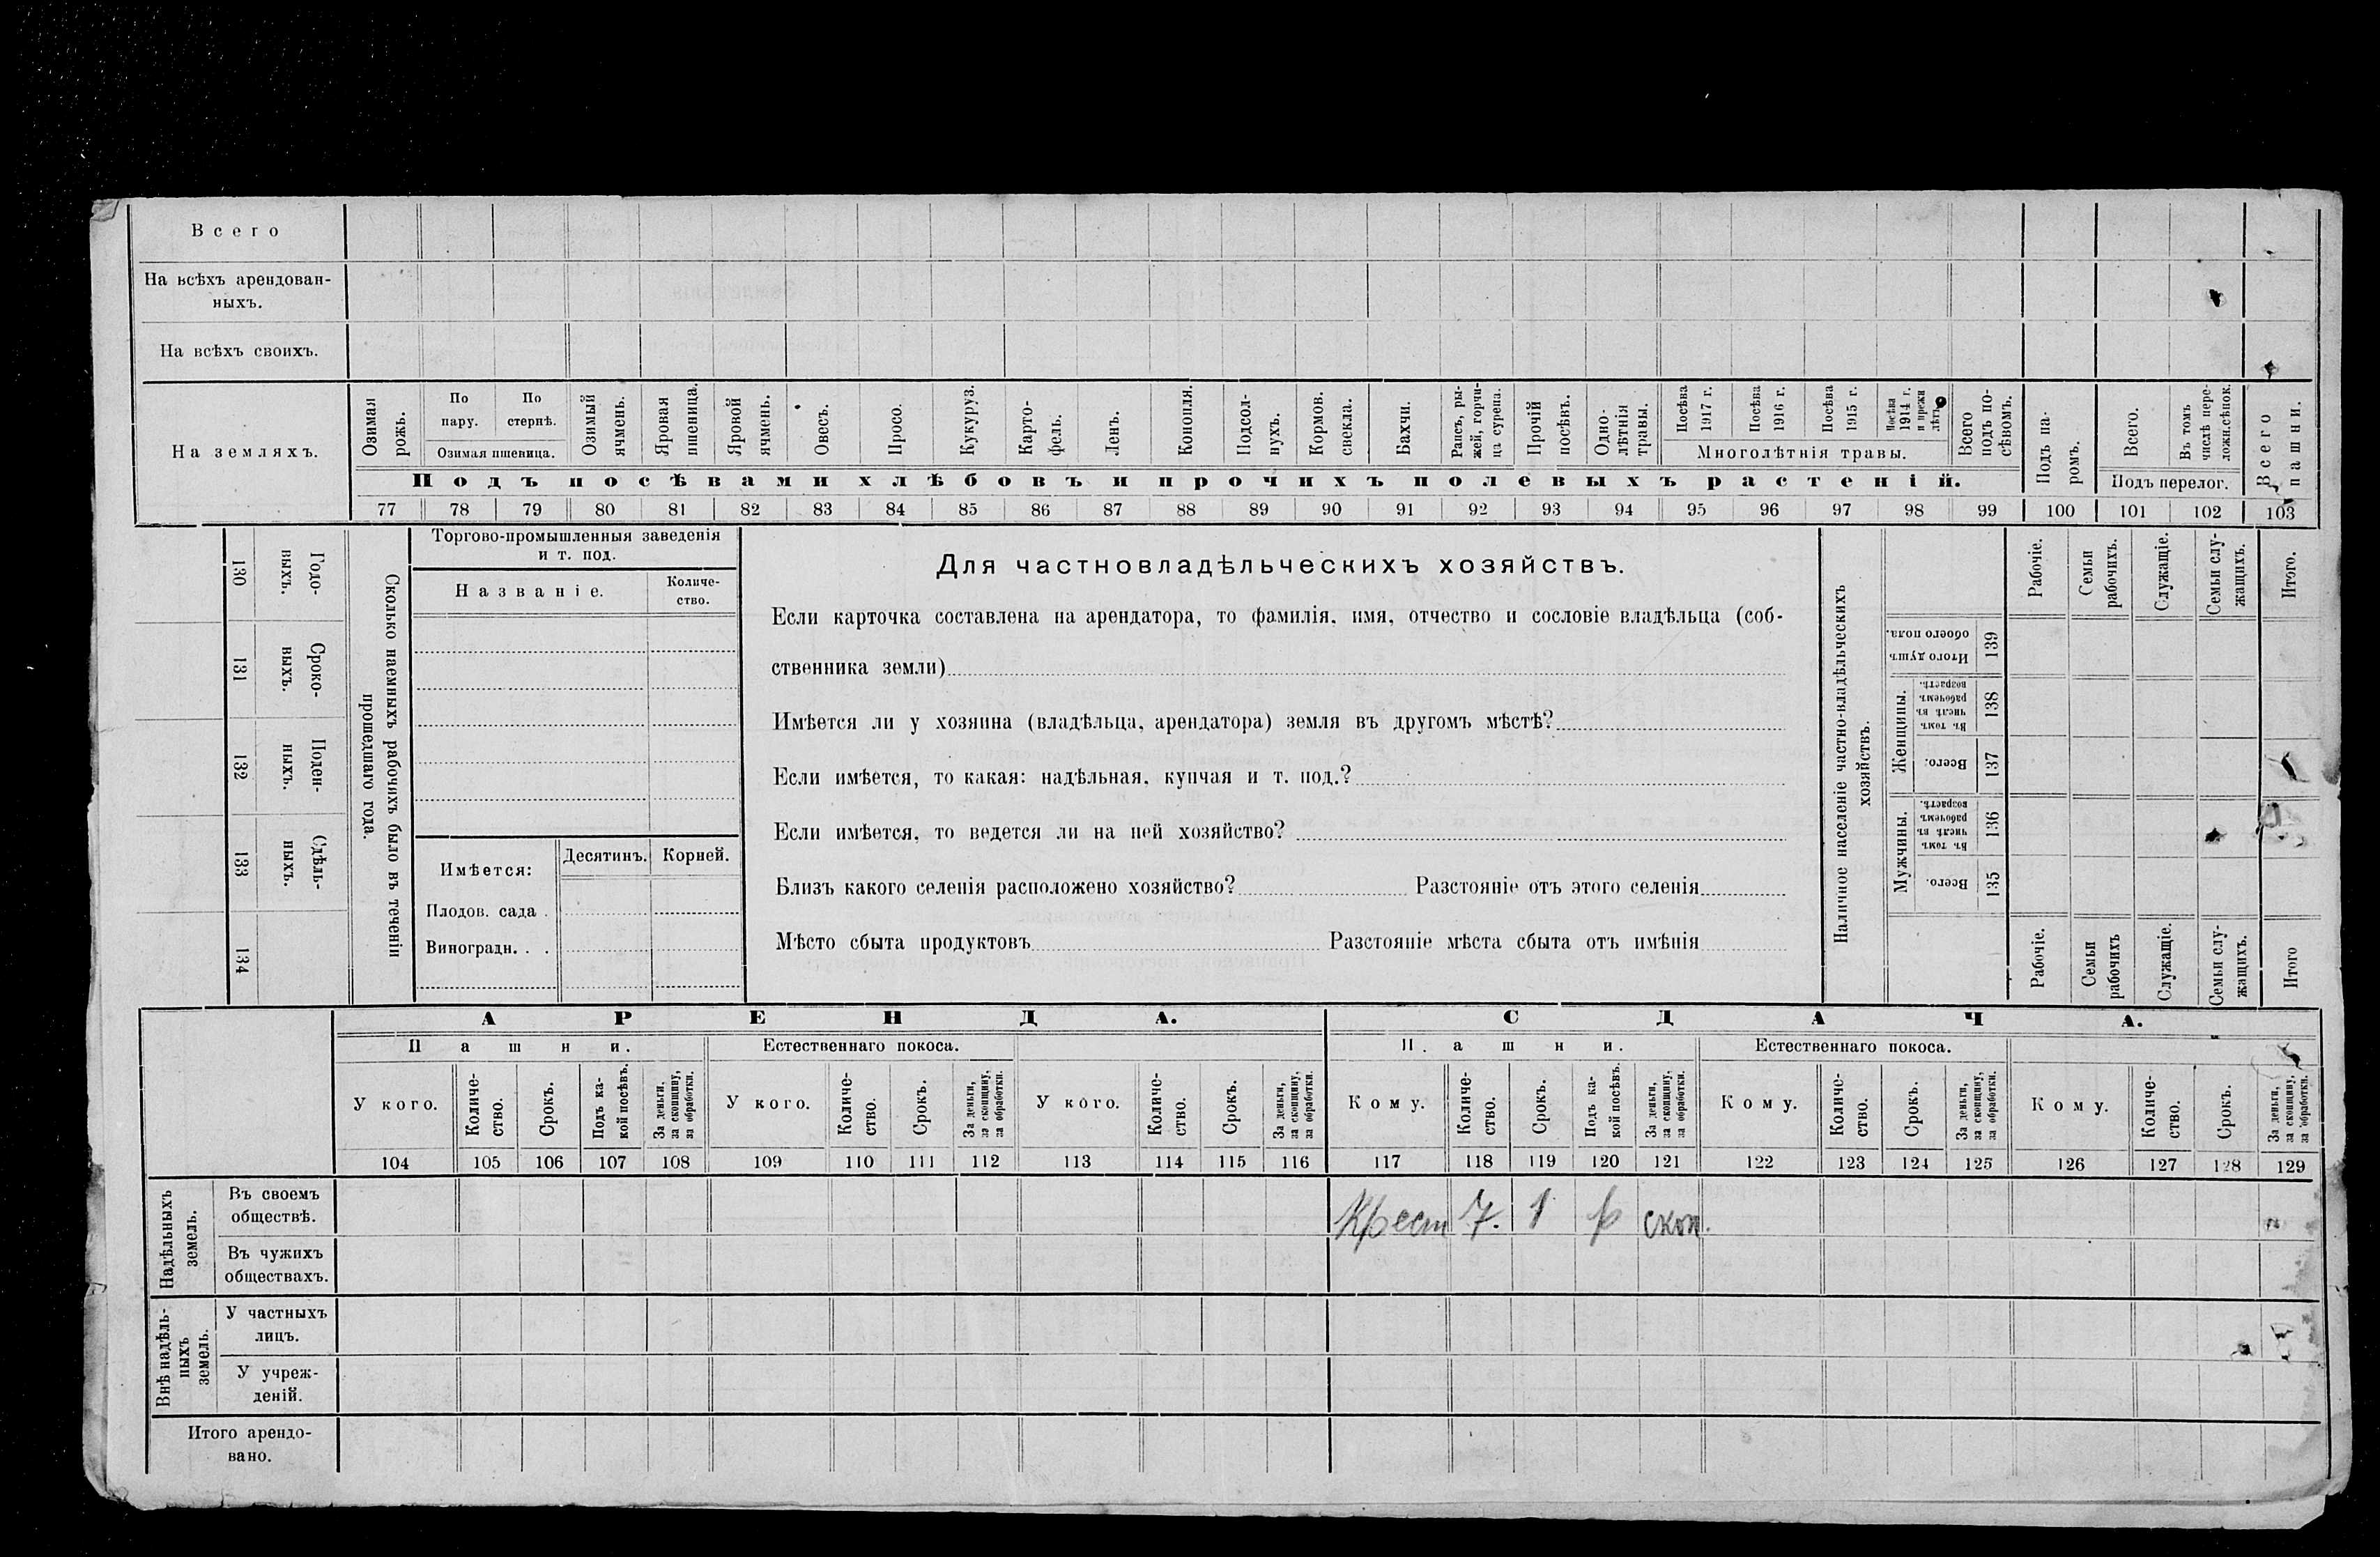 Всего
На всѣхъ арендован-
ныхъ.
На всѣхъ своихъ.
На земляхъ.
Озимая рожь.
По пару.
По стернѣ.
Озимая пшеница.
Озимый ячмень.
Яровая пшеница.
Яровой ячмень.
Овесъ.
Просо.
Кукуруз.
Карто-
фель.
Ленъ.
Конопля.
Подсол-
нухъ.
Кормов. свекла.
Бахчи.
Рапсъ, ры-
жей, горчи-
ца сурепа.
Прочій посѣвъ.
Одно-
лѣтнія травы.
Посѣва 1917 г.
Посѣва 1916 г.
Посѣва 1915 г.
Посѣва 1914 г. и прежн
Многолѣтнія травы.
Всего подъ по-
сѣвомъ.
Подъ посѣвами хлѣбовъ и прочихъ полевыхъ растеній.
Подъ па-
ромъ.
Всего.
Въ томъ числѣ пере-
ложн.сѣнок.
Подъ перелог.
Всего пашни.
77 78 79 80 81 82 83 84 85 86 87 88 89 90 91 92 93 94 95 96 97 98 99 100 101 102 103
130 Годо-
выхъ.
131 Сроко-
выхъ.
132 Поден-
ныхъ.
133 Сдѣль-
ныхъ.
134
Сколько наемныхъ рабочихъ было въ теченіи
прошедшаго года.
Торгово-промышленныя заведенія
и т. под.
Названіе.
Количе-
ство.
Имѣется:
Десятинъ.
Корней.
Плодов. сада .
Виноградн. . .
Для частновладѣльческихъ хозяйствъ.
Если карточка составлена на арендатора, то фамилія, имя, отчество и сословіе владѣльца (соб-
ственника земли)
Имѣется ли у хозяина (владѣльца, арендатора) земля въ другомъ мѣстѣ?
Если имѣется, то какая: надѣльная, купчая и т. под.?
Если имѣется, то ведется ли на ней хозяйство?
Близъ какого селенія расположено хозяйство? Разстояніе отъ этого селенія
Мѣсто сбыта продуктовъ Разстояніе мѣста сбыта отъ имѣнія
Наличное населеніе частно-владѣльческихъ
хозяйствъ.
Рабочіе.
Семьи рабочихъ.
Служащіе.
Семьи слу-
жащихъ.
Итого.
Итого душъ обоего пола. 139
Женщины.
Въ томъ числѣ въ рабочемъ возрастѣ. 138
Всего. 137
Мужчины.
Въ томъ числѣ въ рабочемъ возрастѣ. 136
Всего. 135
Рабочіе.
Семьи рабочихъ
Служащіе.
Семьи слу-
жащихъ.
Итого
АРЕНДА.
СДАЧА.
Пашни.
Естественнаго покоса.
П. ашни.
Естественнаго покоса.
У кого.
Количе-
ство.
Срокъ.
Подъ ка-
кой посѣвъ.
За деньги, за скопщину, за обработки.
У кого.
Количе-
ство.
Срокъ.
За деньги, за скопщину, за обработки.
У кого.
Количе-
ство.
Срокъ.
За деньги, за скопщину, за обработки.
Кому.
Количе-
ство.
Срокъ.
Подъ ка-
кой посѣвъ.
За деньги, за скопщину, за обработки.
Кому.
Количе-
ство.
Срокъ.
За деньги, за скопщину, за обработки.
Кому.
Количе-
ство.
Срокъ.
За деньги, за скопщину, за обработки.
104 105 106 107 108 109 110 111 112 113 114 115 116 117 118 119 120 121 122 123 124 125 126 127 128 129
Надѣльныхъ земель.
Въ своемъ
обществѣ.
Крест 7. 1 р скоп.
Въ чужихъ
обществахъ.
Внѣ надѣль-
ныхъ земель.
У частныхъ
лицъ.
У учреж-
деній.
Итого арендо-
вано.